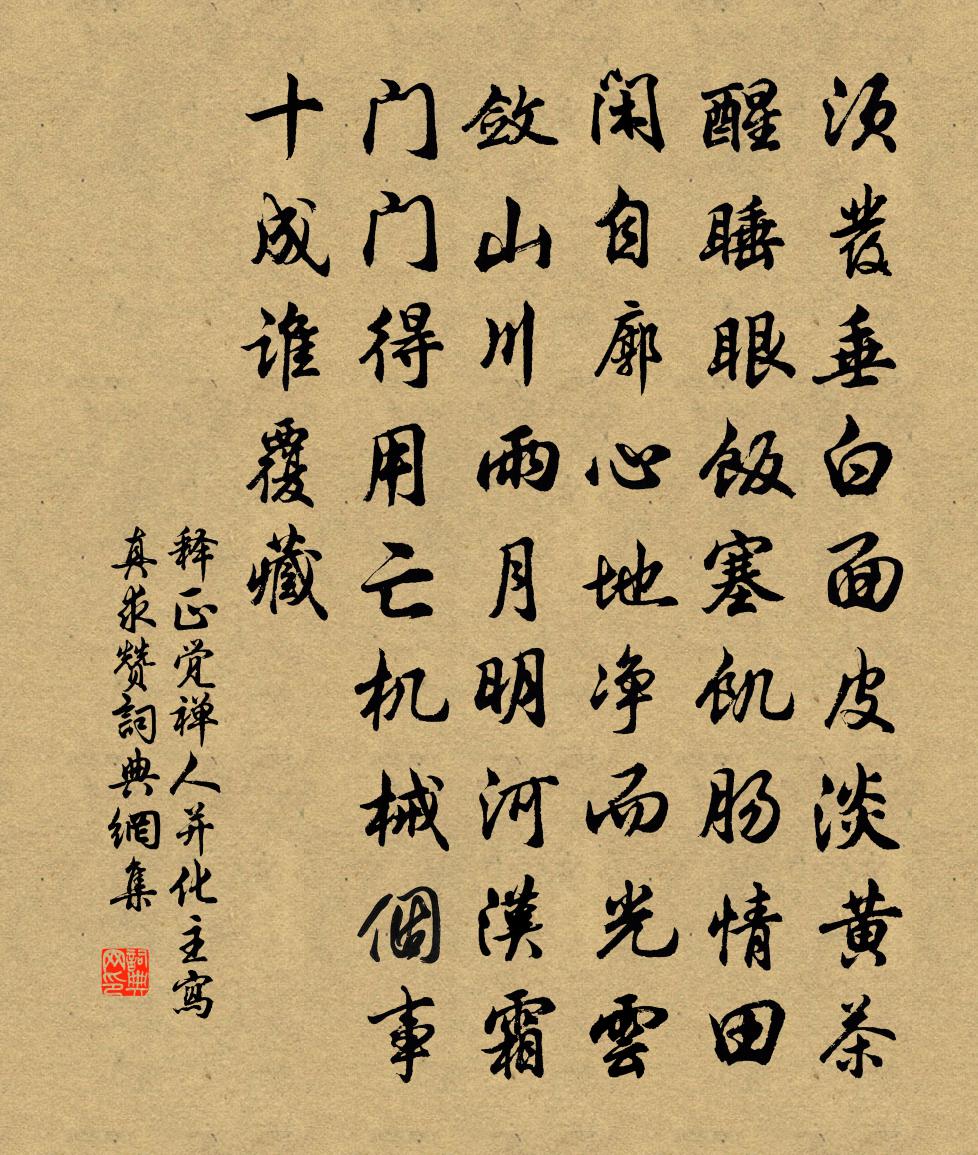 须發垂白面皮淡黄茶
醒睡眼飯塞飢肠情田
闲自廓心地净而光雲
敛山川雨月明河漢霜
门门得用亡机械個事
十成谁覆藏
释正觉禅人并化主寫
真求赞詞典網集
詞典网印